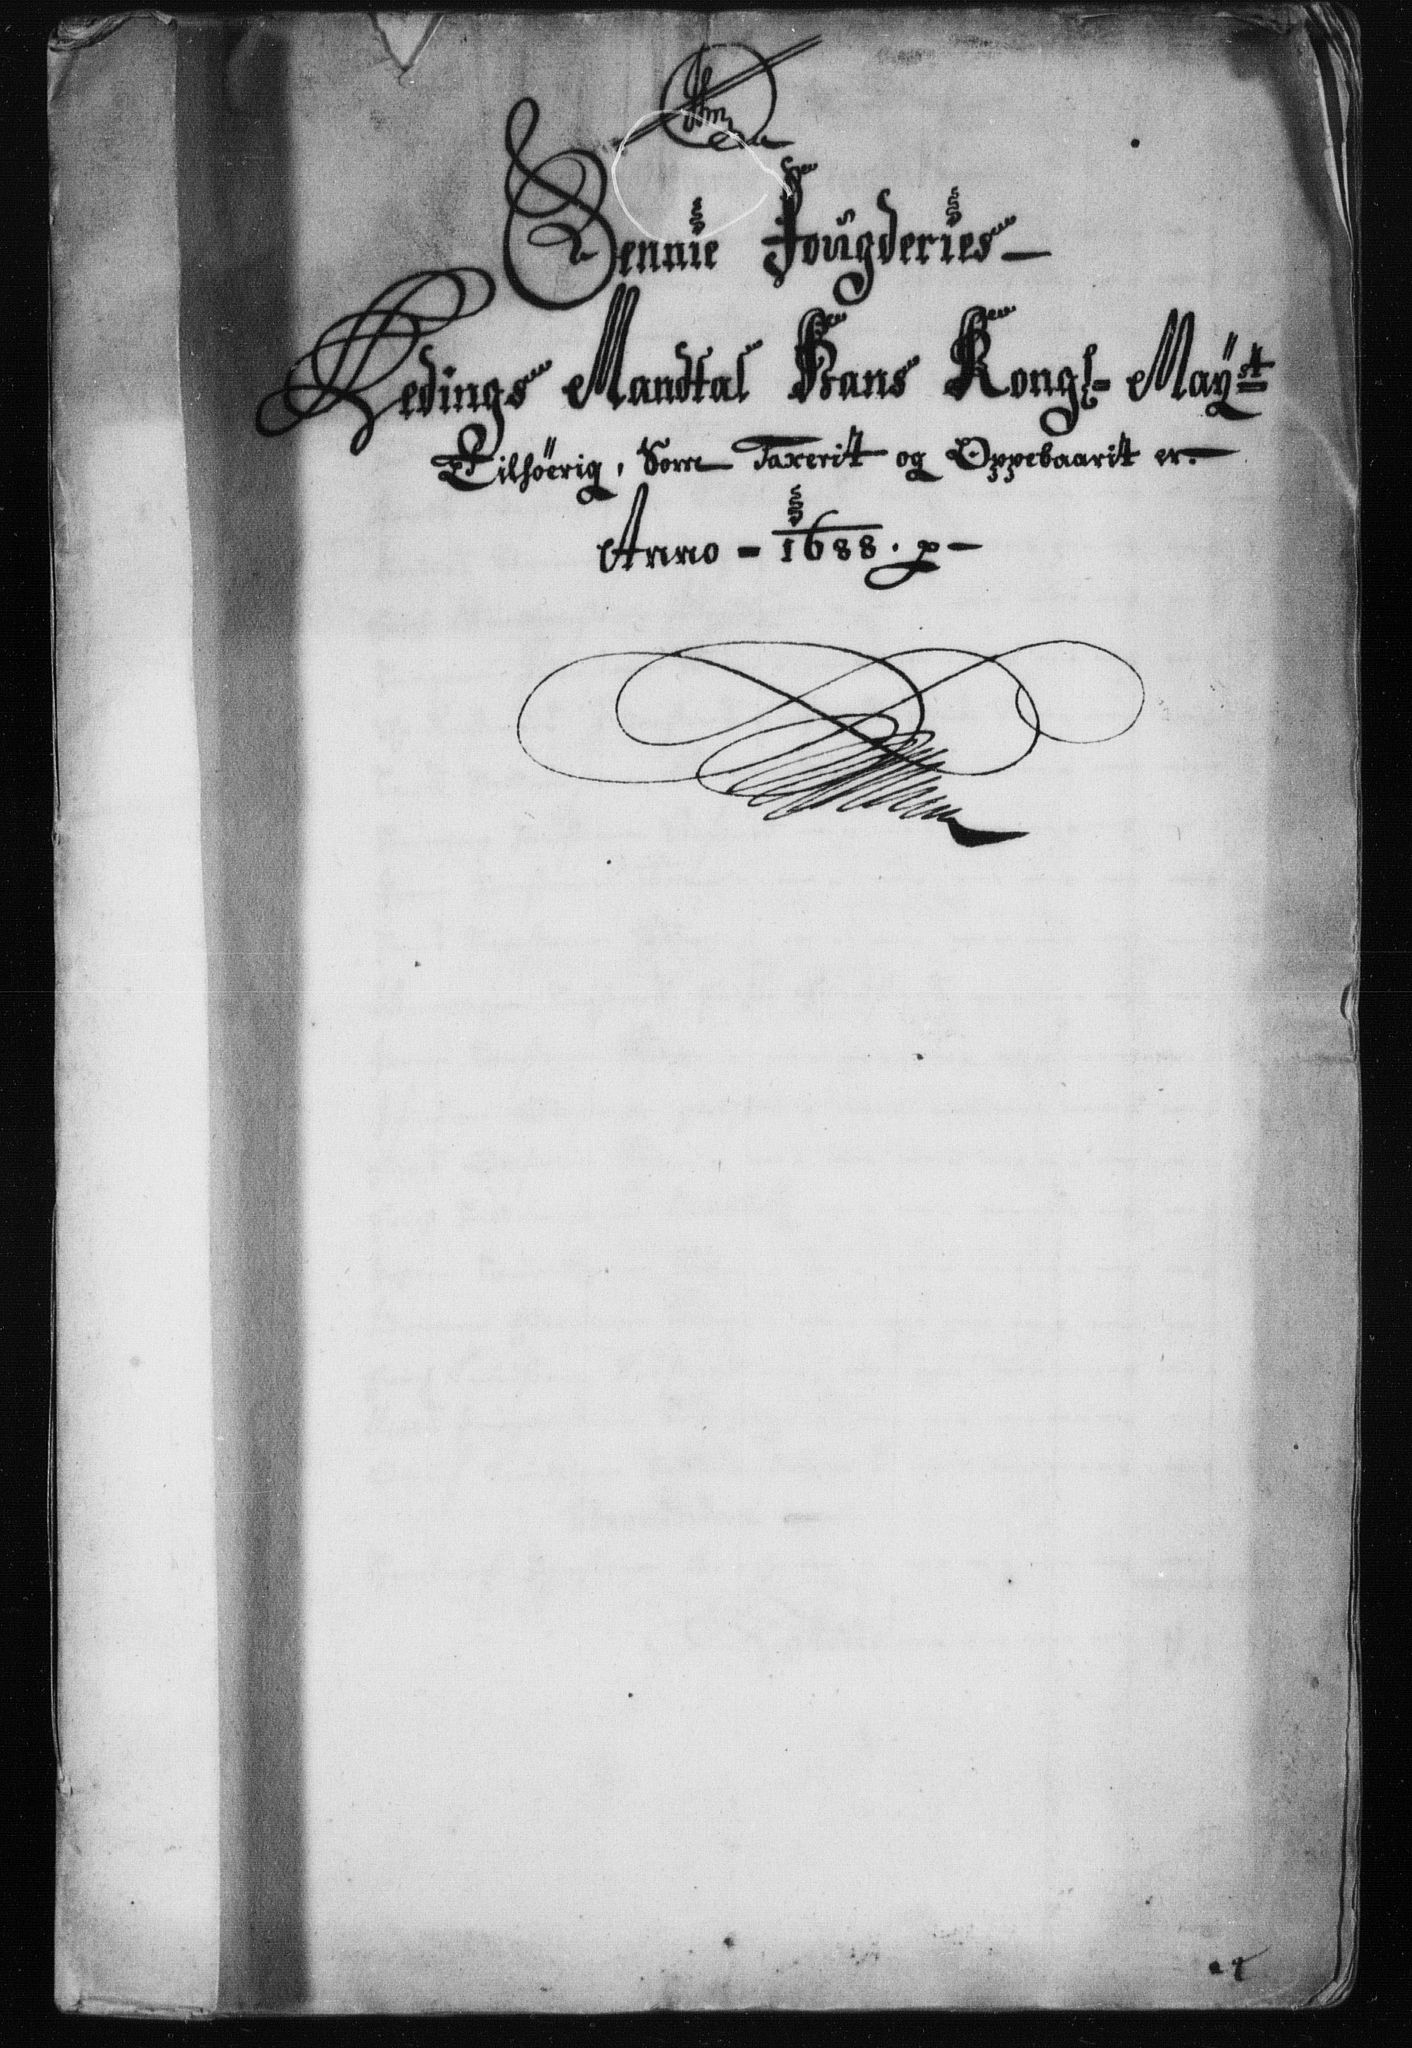 Sennie Fougderies
Ledings Mandtal Hans Kongl: Mayst
Tilhöerig, Som Taxerit og Oppebaarit er.
Anno = 1688.